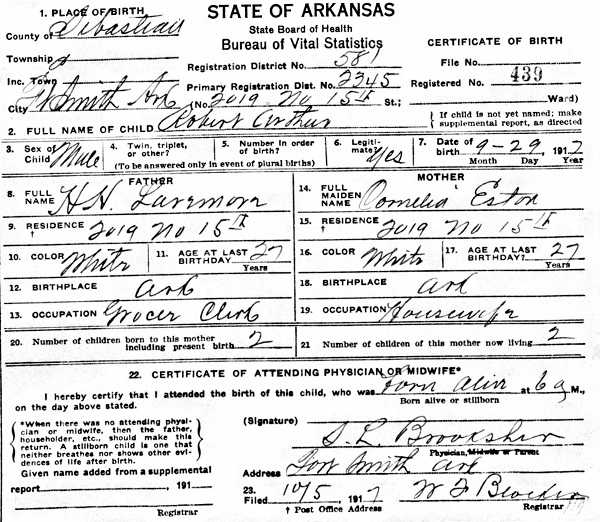 1. PLACE OF BIRTH
STATE OF ARKANSAS
County of Sebastian
State Board of Health
Bureau of Vital Statistics
CERTIFICATE OF BIRTH
Township
Registration District No. 581
File No.
Inc. Town
Primary Registration Dist. No. 2345
Registered No. 439
City Ft Smith Ark (No. 2019 No 15th St.; Ward)
2. FULL NAME OF CHILD Robert Arthur
{ If child is not yet named; make supplemental report, as directed
3. Sex of Child Male
4. Twin, triplet, or other?
5. Number in order of birth?
(To be answered only in event of plural births)
6. Legitimate? Yes
7. Date of birth 9-29, 1917
Month Day Year
FATHER
8. FULL NAME H.H. Laremore
MOTHER
14. FULL MAIDEN NAME Cornelia Eston
9. RESIDENCE † 2019 No 15th
15. RESIDENCE † 2019 No 15th
10. COLOR White
11. AGE AT LAST BIRTHDAY? 27 Years
16. COLOR White
17. AGE AT LAST BIRTHDAY? 27 Years
12. BIRTHPLACE Ark
18. BIRTHPLACE Ark
13. OCCUPATION Grocer Clerk
19. OCCUPATION Housewife
20. Number of children born to this mother including present birth 2
21 Number of children of this mother now living 2
22. CERTIFICATE OF ATTENDING PHYSICIAN OR MIDWIFE*
I hereby certify that I attended the birth of this child, who was born alive at 6 a M.,
on the day above stated.
Born alive or stillborn
*When there was no attending physician or midwife, then the father,
householder, etc., should make this
return. A stillborn child is one that
neither breathes nor shows other evidences of life after birth.
(Signature) S. L. Brooksher
Physician, Midwife or Parent
Given name added from a supplemental
report , 191
Registrar
Address Fort Smith Ark
23. Filed 10/5, 1917
Registrar
† Post Office Address